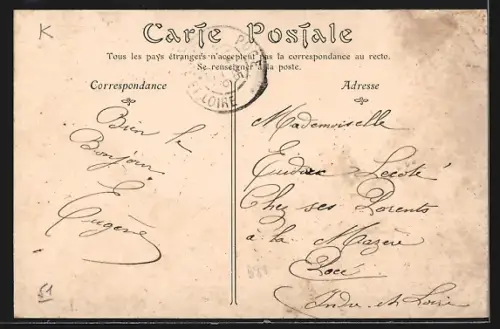 K
Carte Postale
Tous les pays étrangers n'acceptent pas la correspondance au recto.
Se renseigner à la poste.
Correspondance
Adresse
ET-LOIRE
Bien le
Bonjour
E
Eugène
Mademoiselle
Lecoté
Chez ses Parents
à la Mazère
Pocé
Indre et Loire
51